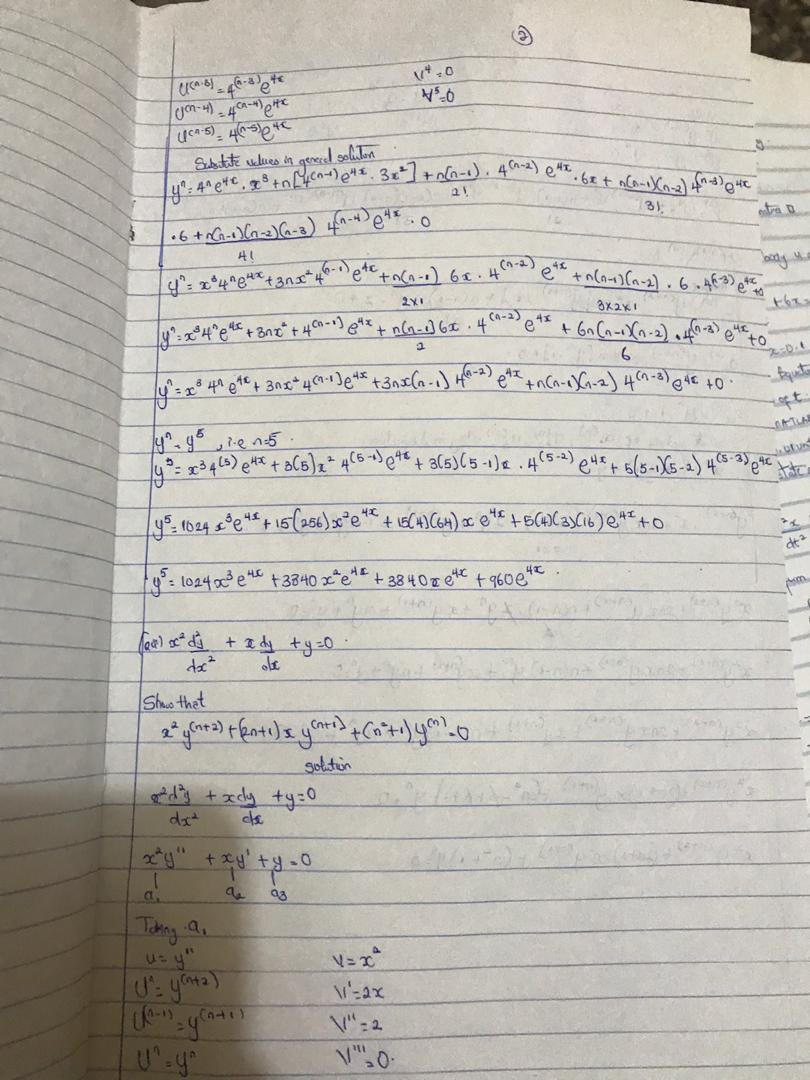 ②
U⁽ⁿ⁻³⁾ = 4⁽ⁿ⁻³⁾e⁴ˣ V⁴ = 0
U⁽ⁿ⁻⁴⁾ = 4⁽ⁿ⁻⁴⁾e⁴ˣ V⁵ = 0
U⁽ⁿ⁻⁵⁾ = 4⁽ⁿ⁻⁵⁾e⁴ˣ
Substate values in general solution
yⁿ = 4ⁿe⁴ˣ · x³ + n[4⁽ⁿ⁻¹⁾e⁴ˣ · 3x²] + n(n-1)/2! · 4⁽ⁿ⁻²⁾ e⁴ˣ · 6x + n(n-1)(n-2)/3! 4⁽ⁿ⁻³⁾e⁴ˣ
· 6 + n(n-1)(n-2)(n-3)/4! 4⁽ⁿ⁻⁴⁾e⁴ˣ · 0
yⁿ = x³4ⁿe⁴ˣ + 3nx²4⁽ⁿ⁻¹⁾e⁴ˣ + n(n-1)/2×1 6x · 4⁽ⁿ⁻²⁾ e⁴ˣ + n(n-1)(n-2)/3×2×1 · 6 · 4⁽ⁿ⁻³⁾e⁴ˣ+0
yⁿ = x³4ⁿe⁴ˣ + 3nx² + 4⁽ⁿ⁻¹⁾e⁴ˣ + n(n-1)6x/2 · 4⁽ⁿ⁻²⁾ e⁴ˣ + 6n(n-1)(n-2)/6 · 4⁽ⁿ⁻³⁾e⁴ˣ+0
yⁿ = x³ 4ⁿ e⁴ˣ + 3nx² 4⁽ⁿ⁻¹⁾e⁴ˣ + 3nx(n-1) 4⁽ⁿ⁻²⁾ e⁴ˣ + n(n-1)(n-2) 4⁽ⁿ⁻³⁾e⁴ˣ + 0 ·
yⁿ = y⁵ , i.e n=5 ·
y⁵ = x³4⁽⁵⁾e⁴ˣ + 3(5)x² 4⁽⁵⁻¹⁾e⁴ˣ + 3(5)(5-1)x · 4⁽⁵⁻²⁾e⁴ˣ + 5(5-1)(5-2) 4⁽⁵⁻³⁾e⁴ˣ
y⁵ = 1024 x³e⁴ˣ + 15(256)x²e⁴ˣ + 15(4)(64)x e⁴ˣ + 5(4)(3)(16)e⁴ˣ + 0
y⁵ = 1024x³e⁴ˣ + 3840x²e⁴ˣ + 3840xe⁴ˣ + 960e⁴ˣ ·
x² d²y/dx² + x dy/dx + y = 0 ·
Show that
x² y⁽ⁿ⁺²⁾ + (2n+1)x y⁽ⁿ⁺¹⁾ + (n²+1)y⁽ⁿ⁾ = 0
solution
x²d²y/dx² + xdy/dx + y = 0
x²y'' + xy' + y = 0
a₁ a₂ a₃
Taking a₁
u = y'' V = x²
Uⁿ = y⁽ⁿ⁺²⁾ V' = 2x
U⁽ⁿ⁻¹⁾ = y⁽ⁿ⁺¹⁾ V'' = 2
Uⁿ = yⁿ V''' = 0 ·